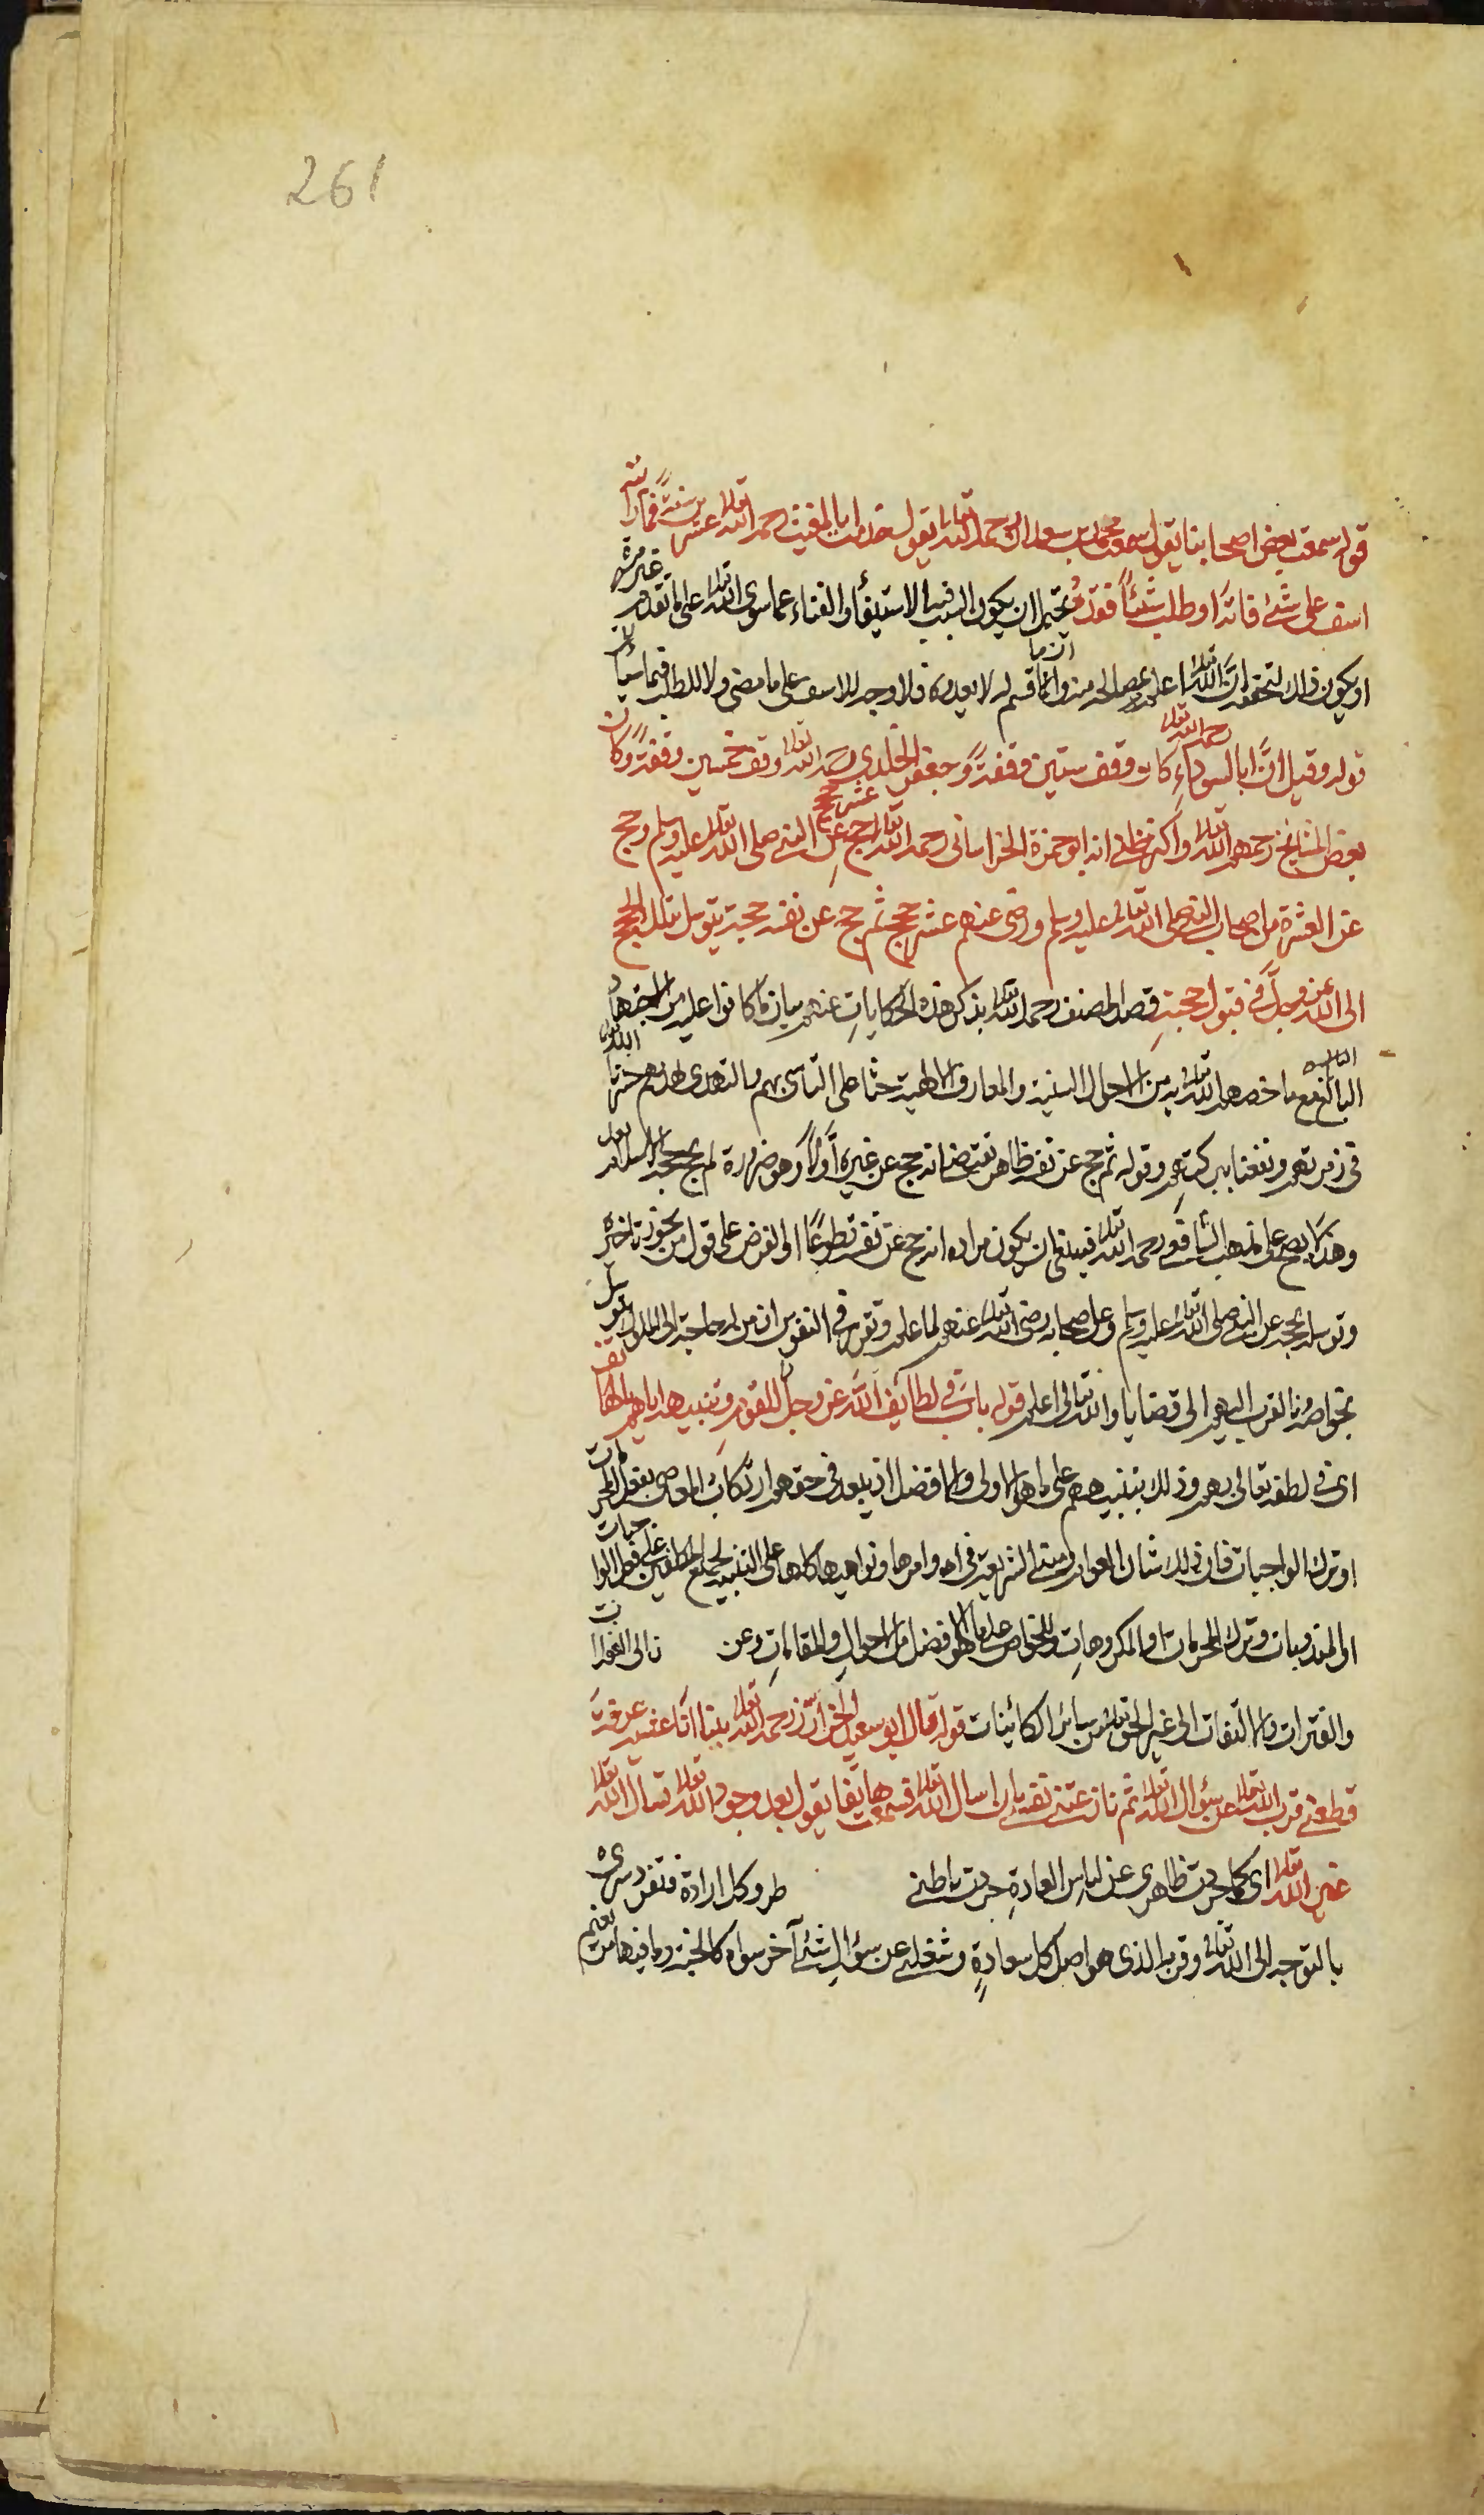 261
قوله سمعت بعض اصحابنا يقول سمعت محمد بن سعدان رحمه الله تعالى يقول خدمت ابا المغيث رحمه الله تعالى عشرين سنة فما رايته
اسف على شئ فاته او طلب شيئا فقده يحتمل ان يكون السبب فيه الاستيفا والفناء عما سوى الله تعالى على ما تقدم غير مرة
او يكون ذلك لتحققه ان الله تعالى اعلم بمصالحه منه وان ما قسم له لا يعدوه فلا وجه للاسف على ما مضى ولا للطلب فيما سيأتى
قوله وقيل ان ابا السوداء رحمه الله تعالى كان وقف ستين وقفة وجعفر الخلدى رحمه الله تعالى وقف خمسين وقفة وكان
بعض المشايخ رحمهم الله تعالى واكثر ظنى انه ابو حمزة الخراسانى رحمه الله تعالى حج عن النبى صلى الله تعالى عليه وسلم عشر حجج وحج
عن العشرة من اصحاب النبى صلى الله تعالى عليه وسلم ورضى عنهم عشر حجج ثم حج عن نفسه حجة يتوسل بتلك الحجج
الى الله عز وجل فى قبول حجته قصد المصنف رحمه الله تعالى بذكر هذه الحكايات عنهم بيان ما كانوا عليه من الاجتهاد
البالغ مع ما خصهم الله تعالى به من الاحوال السنية والمعارف الالهية حثا على التاسى بهم والتهدى بهديهم حشرنا الله تعالى
فى زمرتهم ونفعنا ببركتهم وقوله ثم حج عن نفسه ظاهره يقتضى انه حج عن غيره اولا وهو ضرورة لم يحج حجة الاسلام بعد
وهذا لا يصح على مذهب الشافعى رحمه الله تعالى فينبغى ان يكون مراده انه حج عن نفسه تطوعا او الفرض على قول من يجوز تاخيره
وتوسله بحجه عن النبى صلى الله تعالى عليه وسلم وعن اصحابه رضى الله تعالى عنهم لما علم وتقرر فى النفوس ان من له حاجة الى الملوك يتوسل
بخواصه وذا القرب اليهم الى قضايا والله تعالى اعلم قوله باب فى لطائف الله عز وجل للقوم وتنبيهه اياهم بالهاتف
اى فى لطفه تعالى بهم وذلك بتنبيههم على ما هو الاولى والافضل اذ يبعد فى حقهم ارتكاب المعاصى بفعل المحرمات
او ترك الواجبات فان ذلك شان العوام ومبنى الشريعة فى اوامرها ونواهيها كلها على التنبيه لجميع المكلفين على فعل الواجبات
او المندوبات وترك المحرمات او المكروهات وللخواص على ما هو الافضل من الاحوال والمقامات وعن
والفترات والالتفات الى غير الحق تعالى من سائر الكائنات قوله قال ابو سعيد الخراز رحمه الله تعالى بينا انا عشية عرفة
قطعنى قرب الله تعالى عن سؤال الله تعالى ثم نازعتنى نفسى بان اسال الله تعالى فسمعت هاتفا يقول بعد وجود الله تعالى تسال الله تعالى
غير الله تعالى اى كما جردت ظاهرى عن لباس العادة جردت باطنى وكل ارادة فتفرد سرى
بالتوجه الى الله تعالى وقربه الذى هو اصل كل سعادة وشغلنى عن سؤال شئ آخر سواه كالجنة وما فيها من